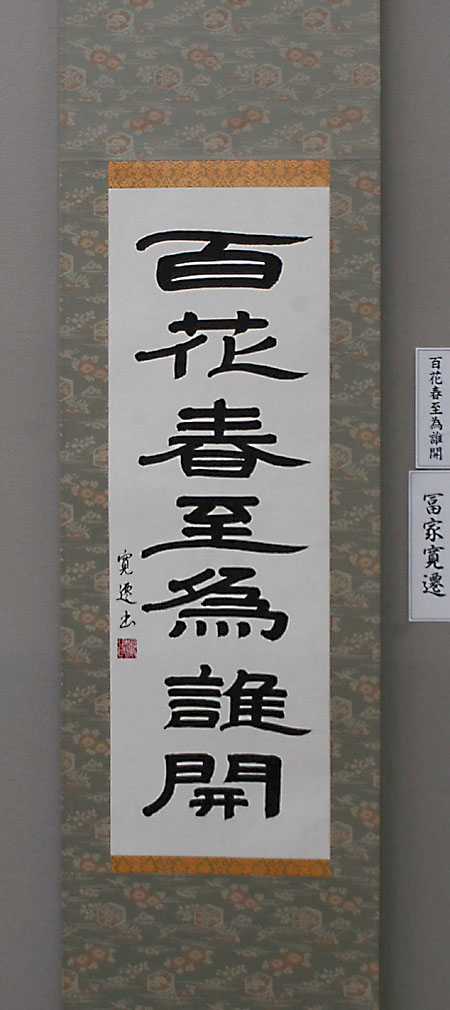 百花春至為誰開
寛遷書
百花春至為誰開
冨家寛遷